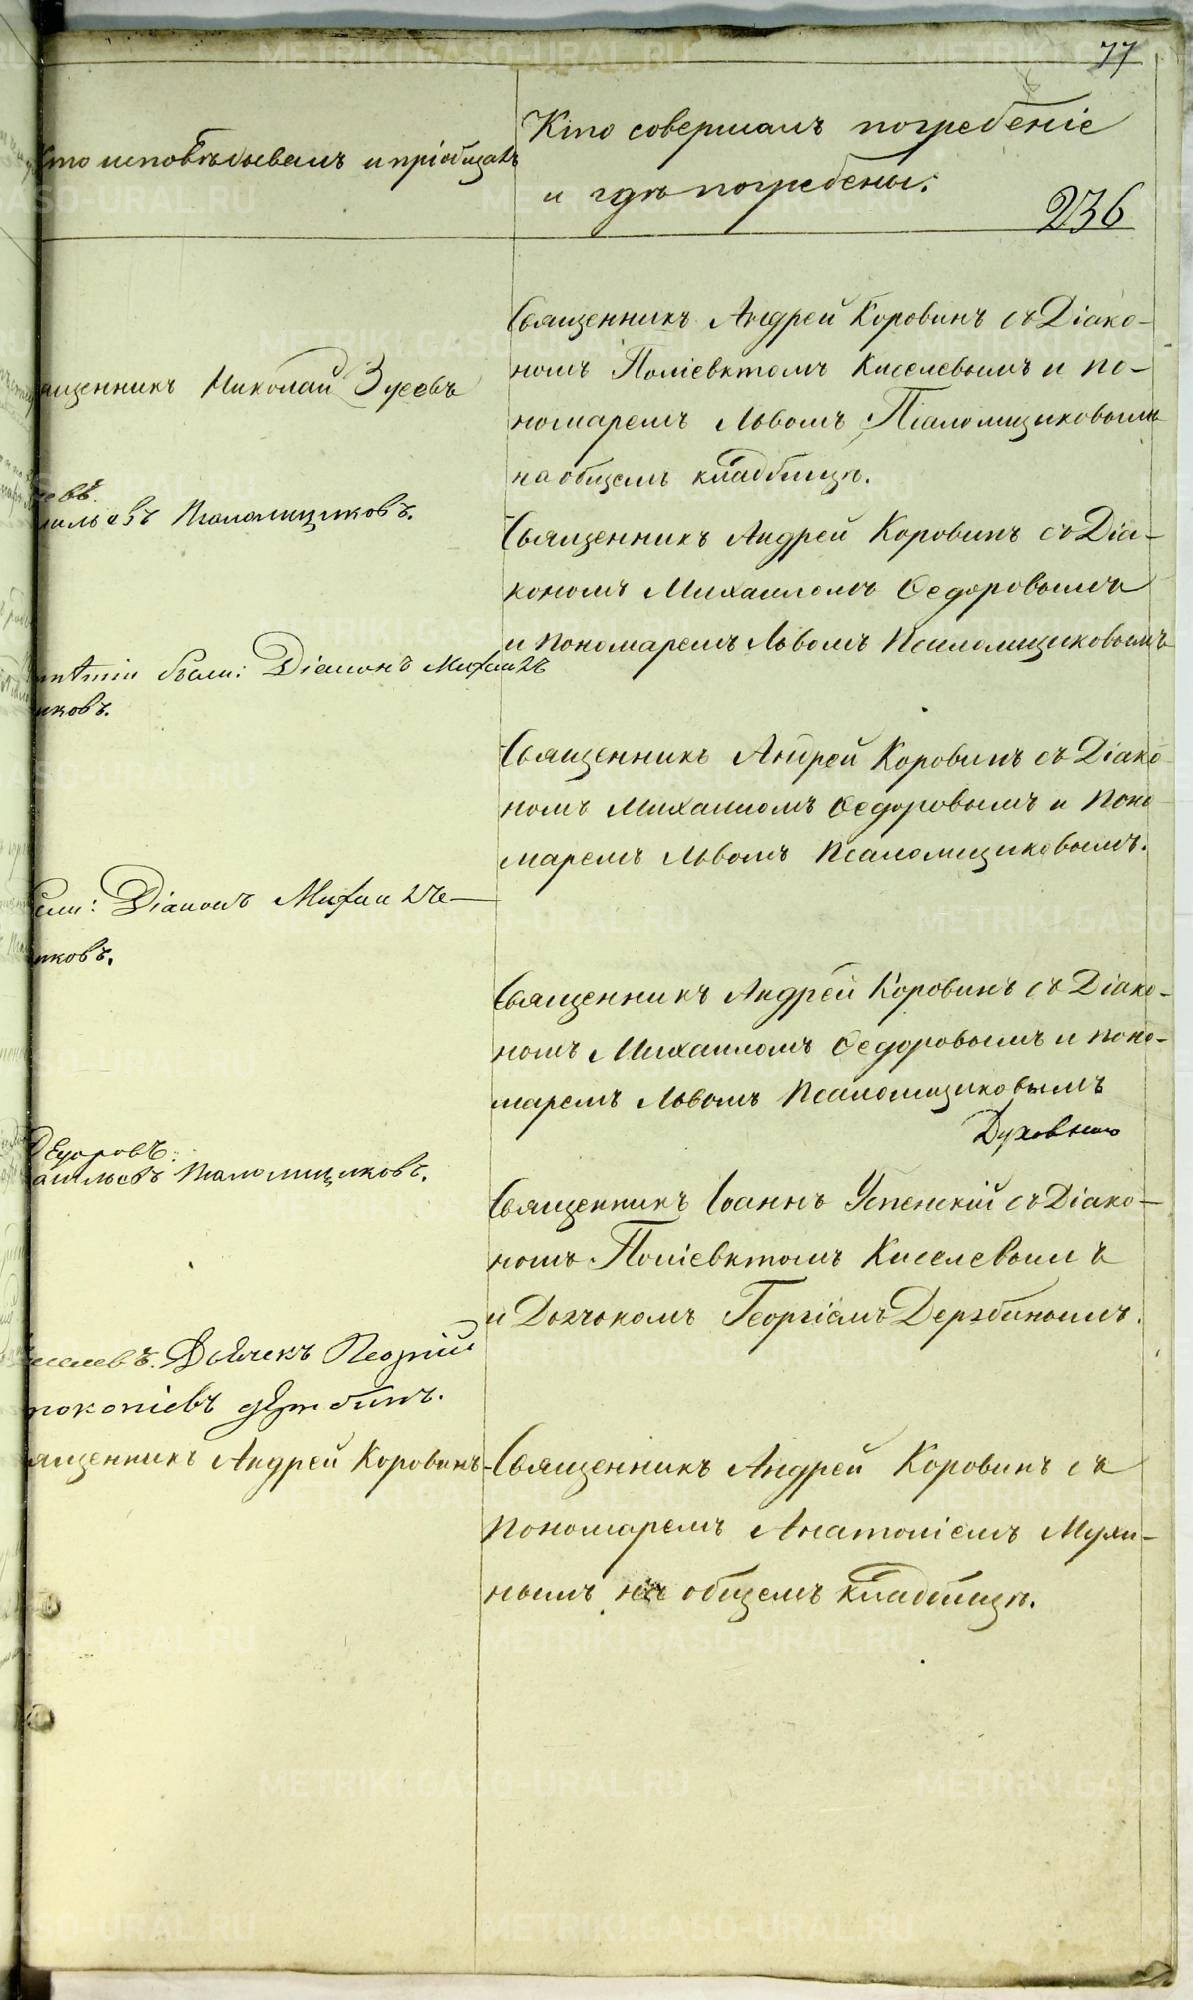 77
Кто исповѣдывалъ и пріобщалъ
Кто совершалъ погребеніе
и гдѣ погребены.
236
Священникъ Андрей Коровинъ съ Діако-
номъ Поліевктомъ Киселевымъ и по-
номаремъ Львомъ Псаломщиковымъ
на общемъ кладбищѣ.
ященникъ Николай Зуевъ
Священникъ Андрей Коровинъ съ Діа-
кономъ Михаиломъ Ѳедоровымъ
и Пономаремъ Львомъ Псаломщиковымъ
овъ.
Псаломщиковъ.
были: Діаконъ Михаилъ
иковъ.
Священникъ Андрей Коровинъ съ Діако
номъ Михаиломъ Ѳедоровымъ и Поно
маремъ Львомъ Псаломщиковымъ.
Діаконъ Михаилъ Ѳе-
иковъ.
Священникъ Андрей Коровинъ съ Діако-
номъ Михаиломъ Ѳедоровымъ и поно-
маремъ Львомъ Псаломщиковымъ
Духовныхъ
Ѳедоровъ.
Псаломщиковъ.
Священникъ Іоаннъ Успенскій съ Діако-
номъ Поліевктомъ Киселевымъ
и Дьячкомъ Георгіемъ Дерябинымъ.
иселевъ. Дьячекъ Георгій
рокопіевъ Дерябинъ.
ященникъ Андрей Коровинъ
Священникъ Андрей Коровинъ съ
Пономаремъ Анатоліемъ Мули-
нымъ на общемъ кладбищѣ.
METRIKI.GASO-URAL.RU